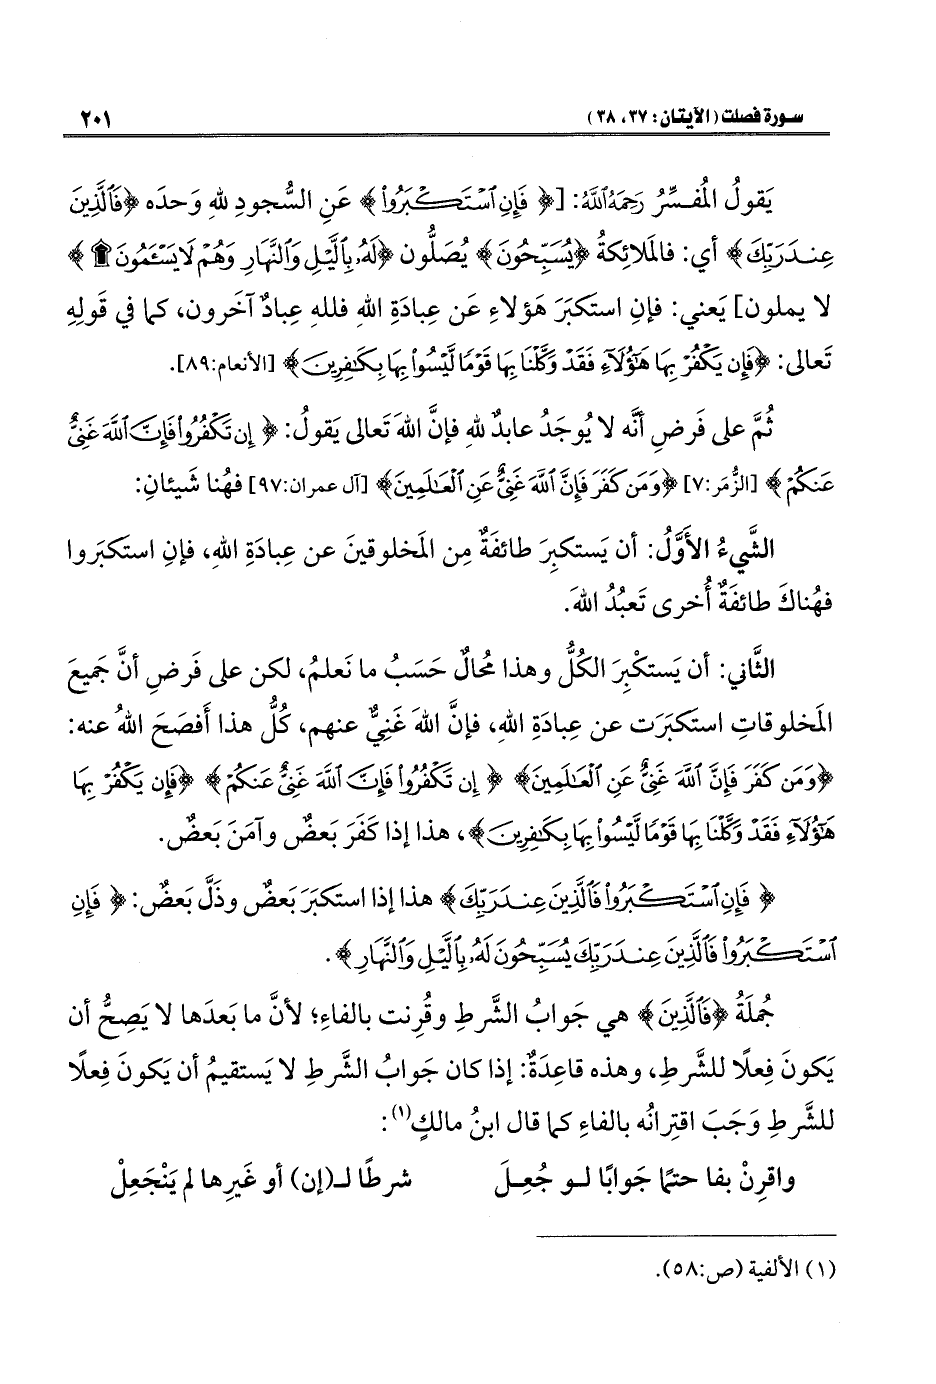 سورة فصلت (الآيتان: ٣٧، ٣٨) ٢٠١
يَقولُ المُفسِّرُ رَحِمَهُ اللَّهُ: [﴿فَإِنِ ٱسۡتَكۡبَرُواْ﴾ عَنِ السُّجودِ للهِ وَحدَه ﴿فَٱلَّذِينَ
عِندَ رَبِّكَ﴾ أي: فالمَلائِكةُ ﴿يُسَبِّحُونَ﴾ يُصَلُّون ﴿لَهُۥ بِٱلَّيۡلِ وَٱلنَّهَارِ وَهُمۡ لَا يَسۡـَٔمُونَ ۩﴾
لا يملون] يَعني: فإنِ استكبَرَ هَؤلاءِ عَن عِبادَةِ اللهِ فللهِ عِبادٌ آخَرون، كما في قَولِهِ
تَعالى: ﴿فَإِن يَكۡفُرۡ بِهَا هَٰٓؤُلَآءِ فَقَدۡ وَكَّلۡنَا بِهَا قَوۡمٗا لَّيۡسُواْ بِهَا بِكَٰفِرِينَ﴾ [الأنعام:٨٩].
ثُمَّ على فَرضِ أنَّه لا يُوجَدُ عابدٌ للهِ فإنَّ اللهَ تَعالى يَقولُ: ﴿إِن تَكۡفُرُواْ فَإِنَّ ٱللَّهَ غَنِيٌّ
عَنكُمۡ﴾ [الزُّمَر:٧] ﴿وَمَن كَفَرَ فَإِنَّ ٱللَّهَ غَنِيٌّ عَنِ ٱلۡعَٰلَمِينَ﴾ [آل عمران:٩٧] فهُنا شَيئانِ:
الشَّيءُ الأوَّلُ: أن يَستكبِرَ طائفَةٌ مِن المَخلوقينَ عن عِبادَةِ اللهِ، فإنِ استكبَروا
فهُناكَ طائفَةٌ أُخرى تَعبُدُ اللهَ.
الثَّاني: أن يَستكْبِرَ الكُلُّ وهذا مُحالٌ حَسَبُ ما نَعلمُ، لكن على فَرضِ أنَّ جَميعَ
المَخلوقاتِ استكبَرَت عن عِبادَةِ اللهِ، فإنَّ اللهَ غَنِيٌّ عنهم، كُلُّ هذا أَفصَحَ اللهُ عنه:
﴿وَمَن كَفَرَ فَإِنَّ ٱللَّهَ غَنِيٌّ عَنِ ٱلۡعَٰلَمِينَ﴾ ﴿إِن تَكۡفُرُواْ فَإِنَّ ٱللَّهَ غَنِيٌّ عَنكُمۡ﴾ ﴿فَإِن يَكۡفُرۡ بِهَا
هَٰٓؤُلَآءِ فَقَدۡ وَكَّلۡنَا بِهَا قَوۡمٗا لَّيۡسُواْ بِهَا بِكَٰفِرِينَ﴾، هذا إذا كَفَرَ بَعضٌ وآمَنَ بَعضٌ.
﴿فَإِنِ ٱسۡتَكۡبَرُواْ فَٱلَّذِينَ عِندَ رَبِّكَ﴾ هذا إذا استكبَرَ بَعضٌ وذَلَّ بَعضٌ: ﴿فَإِنِ
ٱسۡتَكۡبَرُواْ فَٱلَّذِينَ عِندَ رَبِّكَ يُسَبِّحُونَ لَهُۥ بِٱلَّيۡلِ وَٱلنَّهَارِ﴾.
جُملَةُ ﴿فَٱلَّذِينَ﴾ هي جَوابُ الشَّرطِ وقُرِنت بالفاءِ؛ لأنَّ ما بَعدَها لا يَصِحُّ أن
يَكونَ فِعلًا للشَّرطِ، وهذه قاعِدَةٌ: إذا كان جَوابُ الشَّرطِ لا يَستقيمُ أن يَكونَ فِعلًا
للشَّرطِ وَجَبَ اقتِرانُه بالفاءِ كما قال ابنُ مالكٍ(١):
واقرِنْ بفا حتمًا جَوابًا لـو جُعِـلَ شرطًا لـ(إن) أو غَيرِها لم يَنْجَعِلْ
(١) الألفية (ص:٥٨).